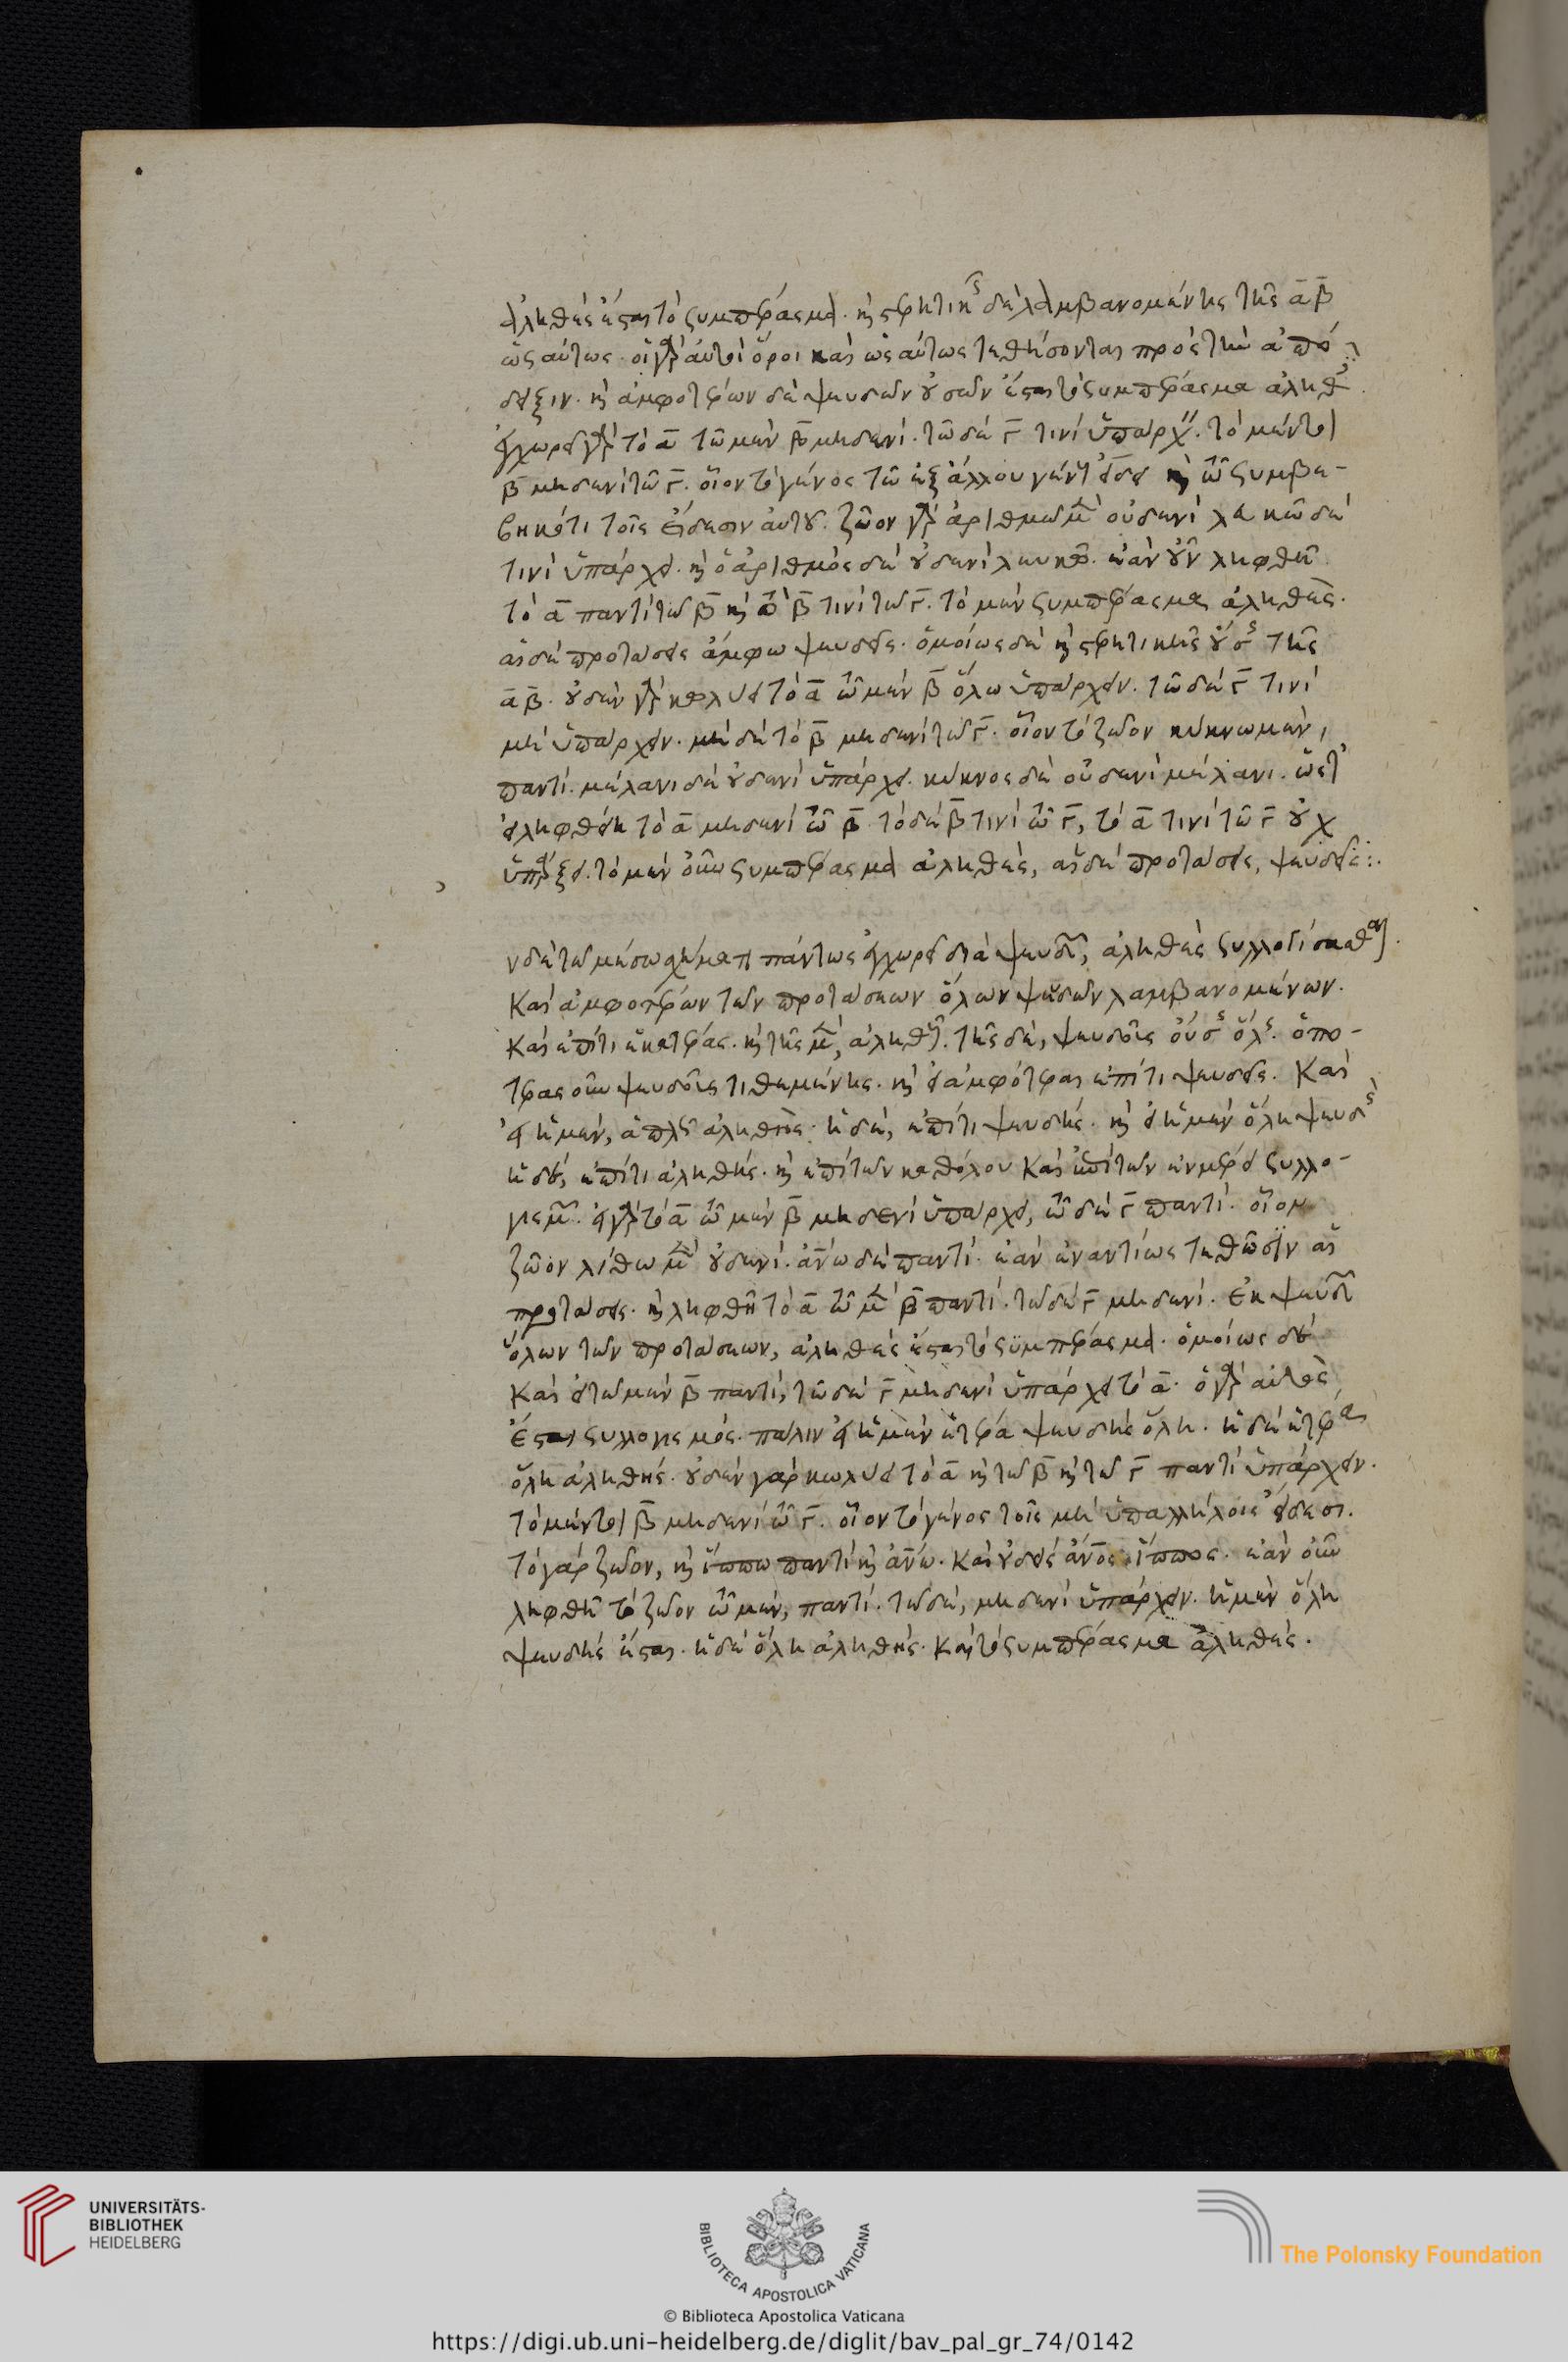 ἀληθὲς ἔσται τὸ συμπέρασμα· καὶ στερητικῆς δὲ λαμβανομένης τῆς α̅ β̅
ὡσαύτως· οἱ γὰρ αὐτοὶ ὅροι καὶ ὡσαύτως τεθήσονται πρὸς τὴν ἀπό-
δειξιν· καὶ ἀμφοτέρων δὲ ψευδῶν οὐσῶν ἔσται τὸ συμπέρασμα ἀληθές.
ἐγχωρεῖ γὰρ τὸ α̅ τῶ μὲν β̅ μηδενὶ· τῶ δὲ γ̅ τινὶ ὑπάρχειν· τὸ μέντοι
β̅ μηδενὶ τῶ γ̅. οἷον τὸ γένος τῶ ἐξ ἄλλου γένους εἴδει καὶ τῶ συμβε-
βηκότι τοῖς εἴδεσιν αὐτοῦ· ζῶον γὰρ ἀριθμῶ μὲν οὐδενὶ λευκῶ δὲ
τινὶ ὑπάρχει· καὶ ὁ ἀριθμὸς δὲ οὐδενὶ λευκῶ· ἐὰν οὖν ληφθῆ
τὸ α̅ παντὶ τῶ β̅ καὶ τὸ β̅ τινὶ τῶ γ̅. τὸ μὲν συμπέρασμα ἀληθὲς.
αἱ δὲ προτάσεις ἄμφω ψευδεῖς· ὁμοίως δὲ καὶ στερητικῆς οὔσης τῆς
α̅ β̅. οὐδὲν γὰρ κωλύει τὸ α̅ τῶ μὲν β̅ ὅλω ὑπάρχειν· τῶ δὲ γ̅ τινὶ
μὴ ὑπάρχειν· μὴ δὲ τὸ β̅ μηδενὶ τῶ γ̅. οἷον τὸ ζῶον κύκνω μὲν,
παντὶ· μέλανι δὲ οὐδενὶ ὑπάρχει· κύκνος δὲ οὐδενὶ μέλανι· ὥστ'
εἰ ληφθείη τὸ α̅ μηδενὶ τῶ β̅ τὸ δὲ β̅ τινὶ τῶ γ̅, τὸ α̅ τινὶ τῶ γ̅ οὐχ
ὑπάρξει· τὸ μὲν οὖν συμπέρασμα ἀληθές, αἱ δὲ προτάσεις, ψευδεῖς:.
ν δὲ τῶ μέσω σχήματι πάντως ἐγχωρεῖ διὰ ψευδῶν, ἀληθὲς συλλογίσασθαι.
Καὶ ἀμφοτέρων τῶν προτάσεων ὅλων ψευδῶν λαμβανομένων.
Καὶ ἐπί τι ἑκατέρας· καὶ τῆς μὲν, ἀληθοῦς· τῆς δὲ, ψευδοῦς οὔσης ὅλης· ὁπο-
τέρας οὖν ψευδοῦς τιθεμένης· καὶ εἰ ἀμφότεραι ἐπί τι ψευδεῖς. Καὶ
εἰ ἡ μὲν, ἁπλῶς ἀληθὴς· ἡ δὲ, ἐπί τι ψευδής· καὶ εἰ ἡ μὲν ὅλη ψευδὴς
ἡ δὲ, ἐπί τι ἀληθής· καὶ ἐπὶ τῶν καθόλου Καὶ ἐπὶ τῶν ἐν μέρει συλλο-
γισμῶν. εἰ γὰρ τὸ α̅ τῶ μὲν β̅ μηδενὶ ὑπάρχει, τῶ δὲ γ̅ παντὶ· οἷον
ζῶον λίθω μὲν οὐδενὶ· ἀν̅ω δὲ παντὶ· ἐὰν ἐναντίως τεθῶσιν αἱ
προτάσεις· καὶ ληφθῆ τὸ α̅ τῶ μὲν β̅ παντὶ· τῶ δὲ γ̅ μηδενὶ· Ἐκ ψευδῶν
ὅλων τῶν προτάσεων, ἀληθὲς ἔσται τὸ συμπέρασμα· ὁμοίως δὲ
Καὶ εἰ τῶ μὲν β̅ παντὶ, τῶ δὲ γ̅ μηδενὶ ὑπάρχει τὸ α̅. ὁ γὰρ αὐτὸς
ἔσται συλλογισμός· πάλιν εἰ ἡ μὲν ἑτέρα ψευδὴς ὅλη· ἡ δὲ ἑτέρα
ὅλη ἀληθής· οὐδὲν γὰρ κωλύει τὸ α̅ καὶ τῶ β̅ καὶ τῶ γ̅ παντὶ ὑπάρχειν.
τὸ μέντοι β̅ μηδενὶ τῶ γ̅. οἷον τὸ γένος τοῖς μὴ ὑπαλλήλοις εἴδεσι.
τὸ γὰρ ζῶον, καὶ ἵππω παντὶ καὶ ἀν̅ω· Καὶ οὐδεὶς ἄν̅ος ἵππος· ἐὰν οὖν
ληφθῆ τὸ ζῶον τῶ μὲν, παντὶ· τῶ δὲ, μηδενὶ ὑπάρχειν· ἡ μὲν ὅλη
ψευδὴς ἔσται· ἡ δὲ ὅλη ἀληθής· Καὶ τὸ συμπέρασμα ἀληθές.
UNIVERSITÄTS-
BIBLIOTHEK
HEIDELBERG
BIBLIOTECA APOSTOLICA VATICANA
The Polonsky Foundation
© Biblioteca Apostolica Vaticana
https://digi.ub.uni-heidelberg.de/diglit/bav_pal_gr_74/0142